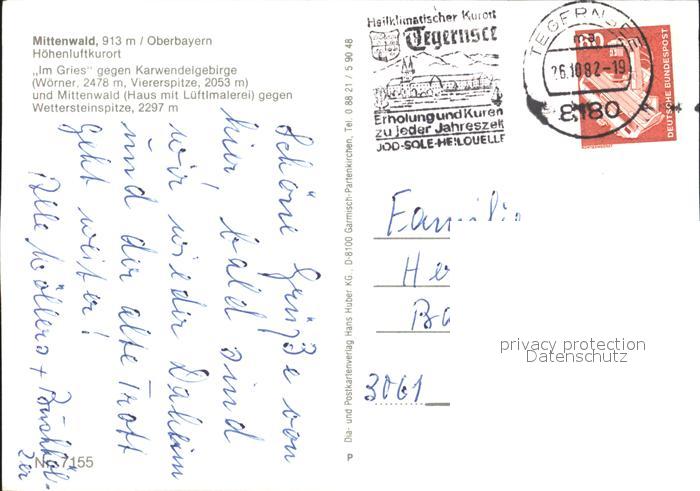 Mittenwald, 913 m / Oberbayern
Höhenluftkurort
„Im Gries" gegen Karwendelgebirge
(Wörner, 2478 m, Viererspitze, 2053 m)
und Mittenwald (Haus mit Lüftlmalerei) gegen
Wettersteinspitze, 2297 m
Schöne Grüße von
hier, bald sind
wir wieder Daheim
und der alte Trott
geht weiter!
Alle Möllers +
Nr. 7155
Dia- und Postkartenverlag Hans Huber KG., D-8100 Garmisch-Partenkirchen, Tel. 0 88 21 / 5 90 48
P
Heilklimatischer Kurort
Tegernsee
Erholung und Kuren
zu jeder Jahreszeit
JOD-SOLE-HEILQUELLE
TEGERNSEE
ma
26.10.82-19
8180
60
DEUTSCHE BUNDESPOST
Familie
He
Ba
3061
privacy protection
Datenschutz